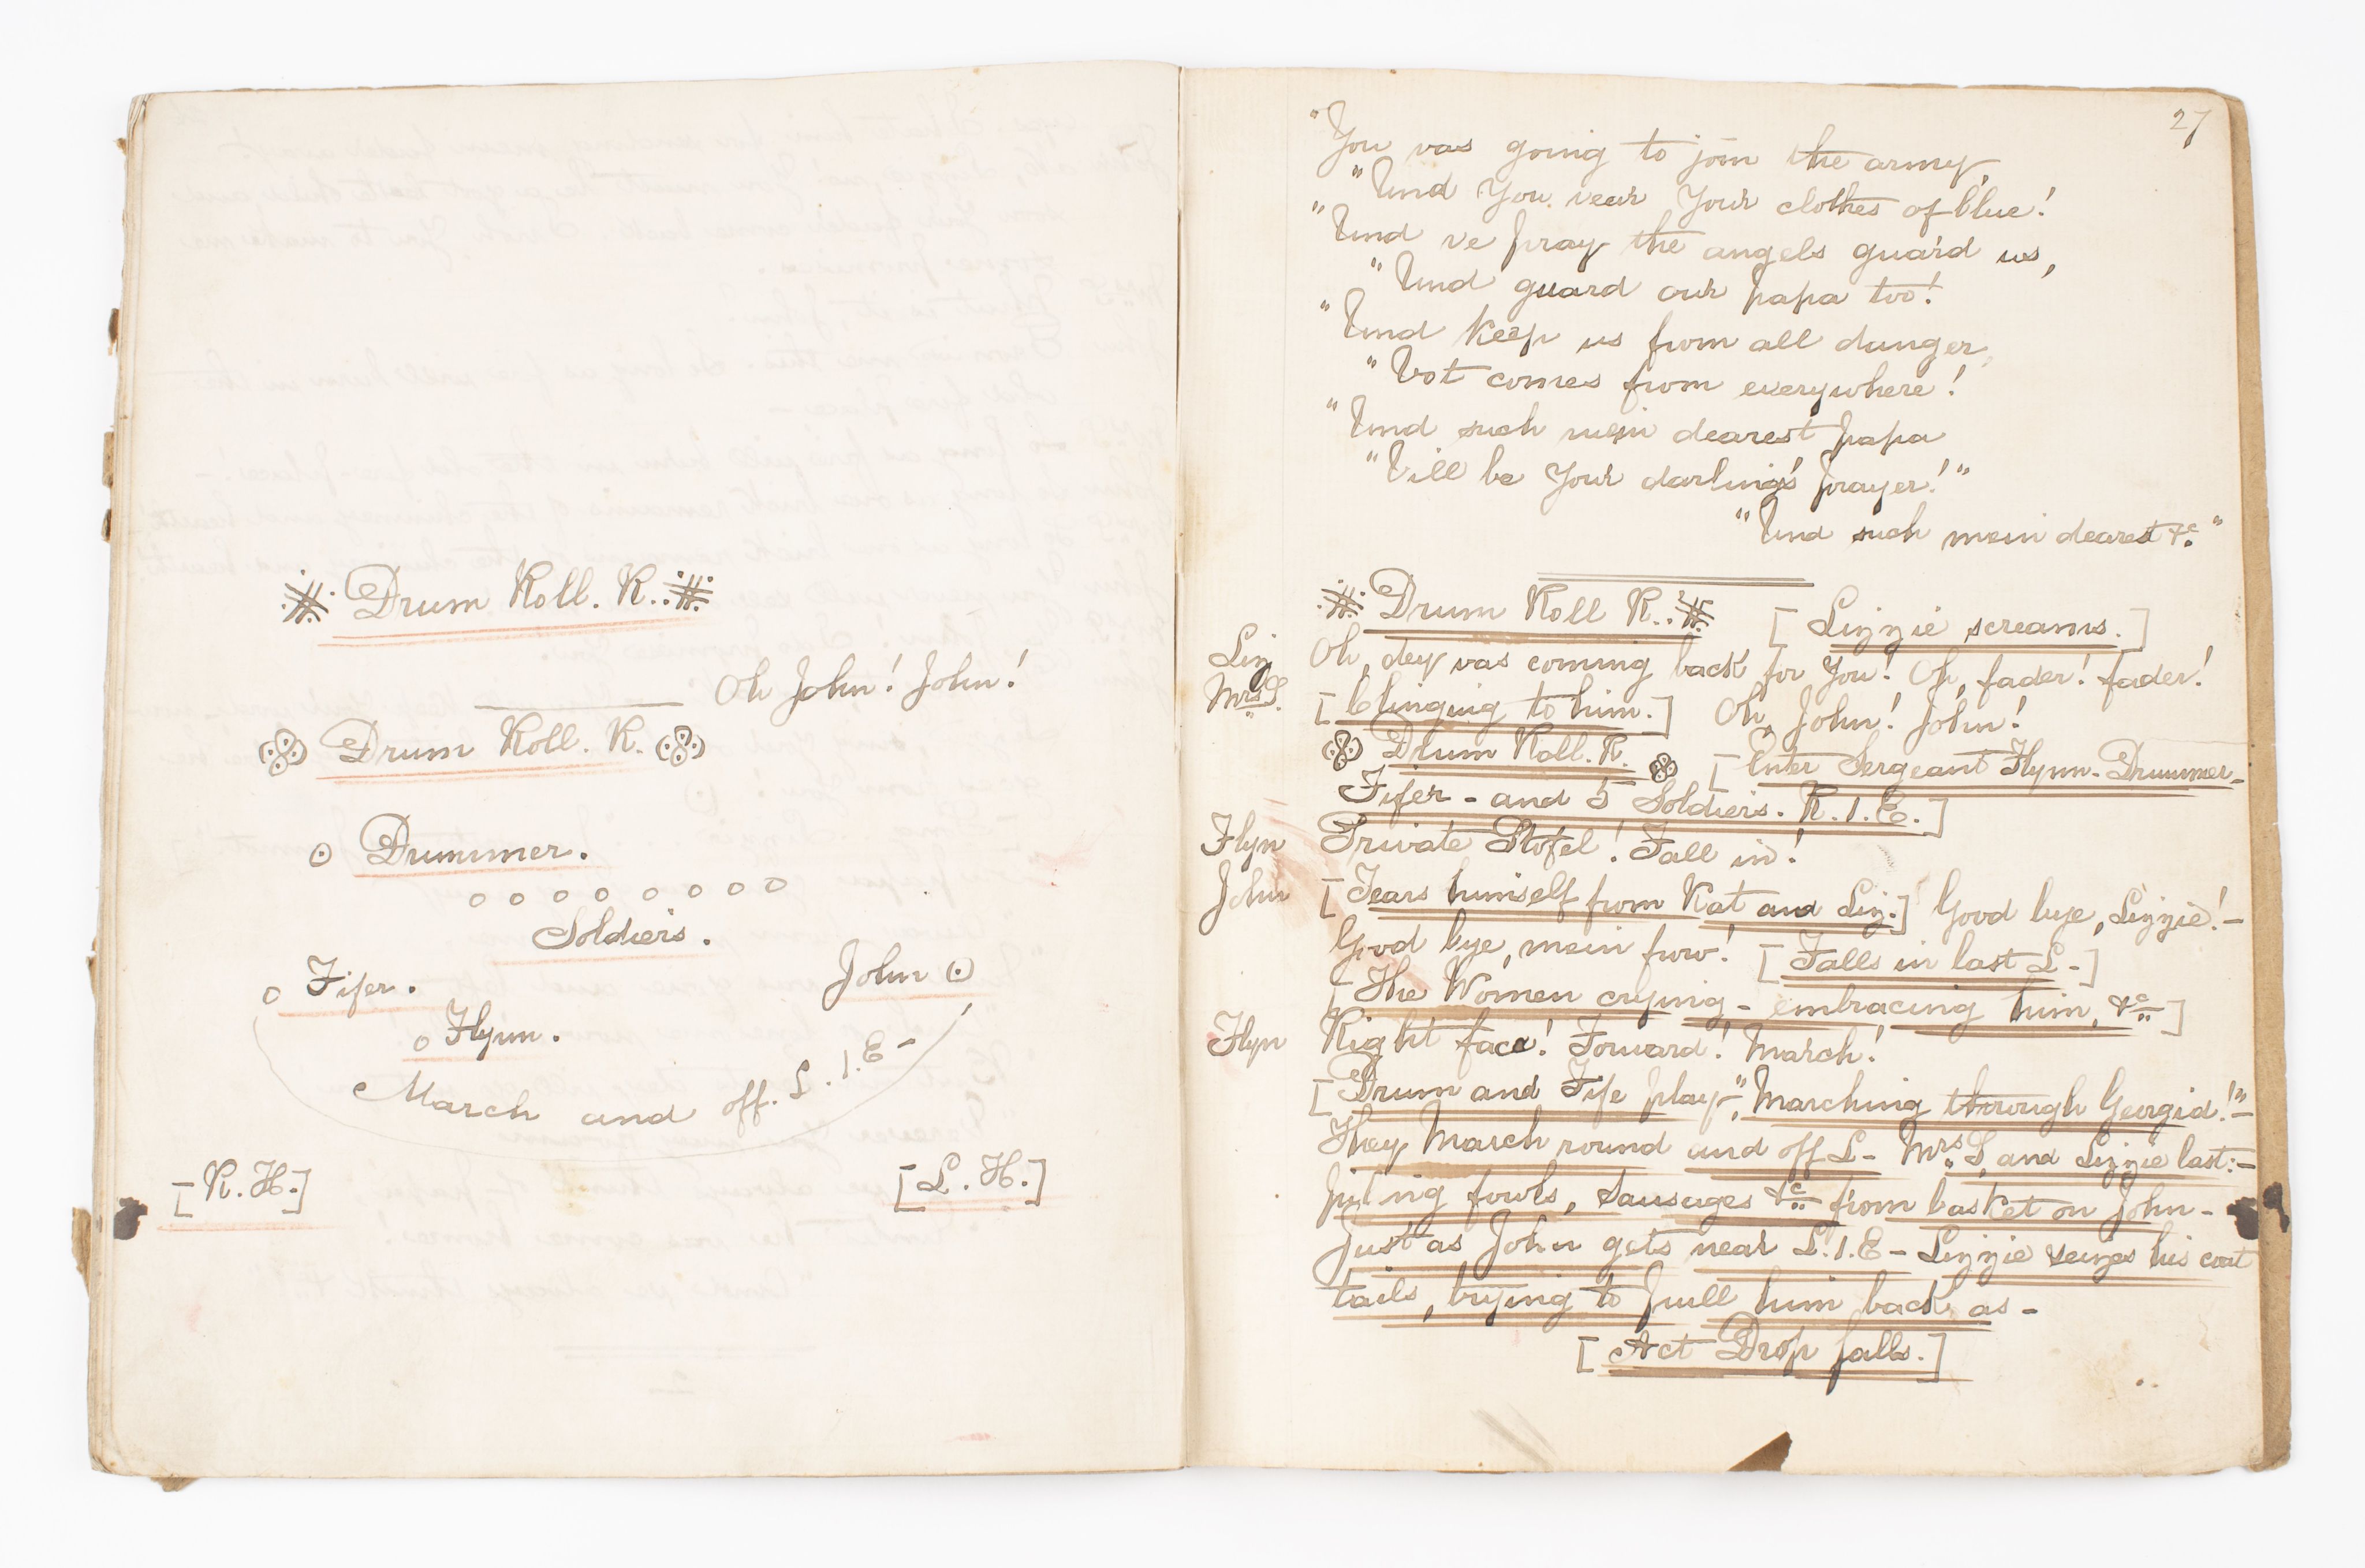 Drum Roll. R.
Oh John! John!
Drum Roll. R.
Drummer.
Soldiers.
Fifer.
John
Flynn.
March and off. L. 1. E -
[R. H.]
[L. H.]
27
"You vas going to join the army,
"Und You vear Your clothes of blue!
"Und ve pray the angels guard us,
"Und guard our papa too!
"Und Keep us from all danger,
"Vot comes from everywhere!
"Und such mein dearest papa
"Vill be Your darling's prayer!"
"Und such mein dearest &c."
Drum Roll R.. [Lizzie screams.]
Liz Oh, dey vas coming back for You! Oh, fader! fader!
Mrs S. [Clinging to him.] Oh, John! John!
Drum Roll. R. [Enter Sergeant Flynn - Drummer -
Fifer - and 5 Soldiers. R. 1. E.]
Flyn Private Stofel! Fall in!
John [Tears himself from Kat and Liz.] Good bye, Lizzie! -
Good bye, mein frow! [Falls in last L -]
[The Women crying - embracing him, &c]
Flyn Right face! Forward! March!
[Drum and Fife play - "Marching through Georgia!" -
They March round and off L - Mrs. S. and Lizzie last: -
puting fowls, sausages &c from basket on John -
Just as John gets near L. 1. E - Lizzie seizes his coat
tails, trying to pull him back, as -
[Act Drop falls.]